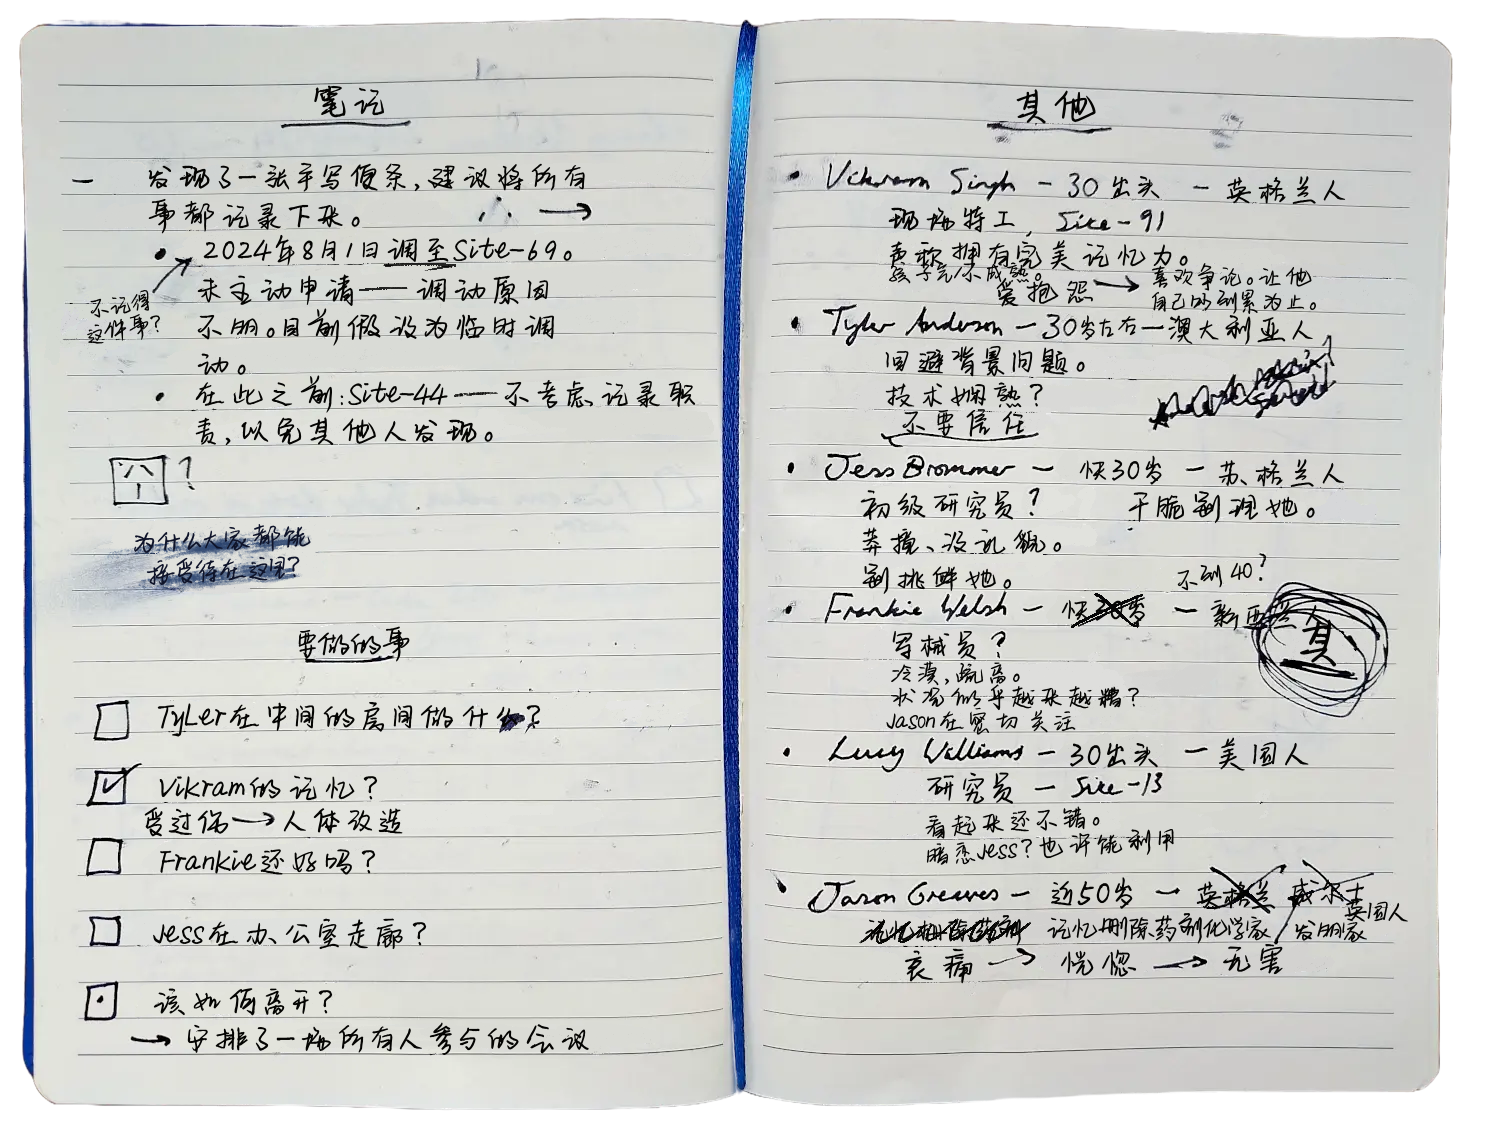 笔记
一 发现了一张手写便条，建议将所有
事都记录下来。 ∴ →
• 2024年8月1日调至Site-69。
未主动申请——调动原因
不明。目前假设为临时调
动。
不记得
这件事？
• 在此之前：Site-44——不考虑记录职
责，以免其他人发现。
？
为什么大家都能
接受待在这里？
要做的事
TyLer在中间的房间做什么？
Vikram的记忆？
受过伤→人体改造
Frankie还好吗？
Jess在办公室走廊？
该如何离开？
→ 安排了一场所有人参与的会议
其他
• Vikram Singh — 30出头 — 英格兰人
现场特工，Site-91
声称拥有完美记忆力。
孩子气/不成熟。
爱抱怨 → 喜欢争论。让他
自己吵到累为止。
• Tyler Anderson — 30岁左右 — 澳大利亚人
回避背景问题。
技术娴熟？
不要信任
• Jess Brommer — 快30岁 — 苏格兰人
初级研究员？ 干脆别理她。
莽撞、没礼貌。
别挑衅她。
不到40？
• Frankie Welsh — 快30岁 — 新西兰人
军械员？
冷漠，疏离。
状况似乎越来越糟？
Jason在密切关注
其
• Lucy Williams — 30出头 — 美国人
研究员 — Site-13
看起来还不错。
暗恋Jess？也许能利用
• Jason Greaves — 近50岁 — 英格兰 威尔士
英国人
记忆删除药剂 记忆删除药剂化学家/发明家
哀痛 → 恍惚 → 无害